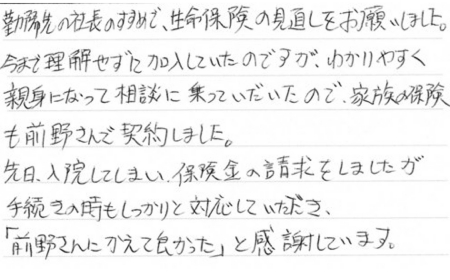 勤務先の社長のすすめで、生命保険の見直しをお願いしました。
今まで理解せずに加入していたのですが、わかりやすく
親身になって相談に乗っていだいたので、家族の保険
も前野さんで契約しました。
先日、入院してしまい、保険金の請求をしましたが
手続きの時もしっかりと対応していただき、
「前野さんにかえて良かった」と感謝しています。